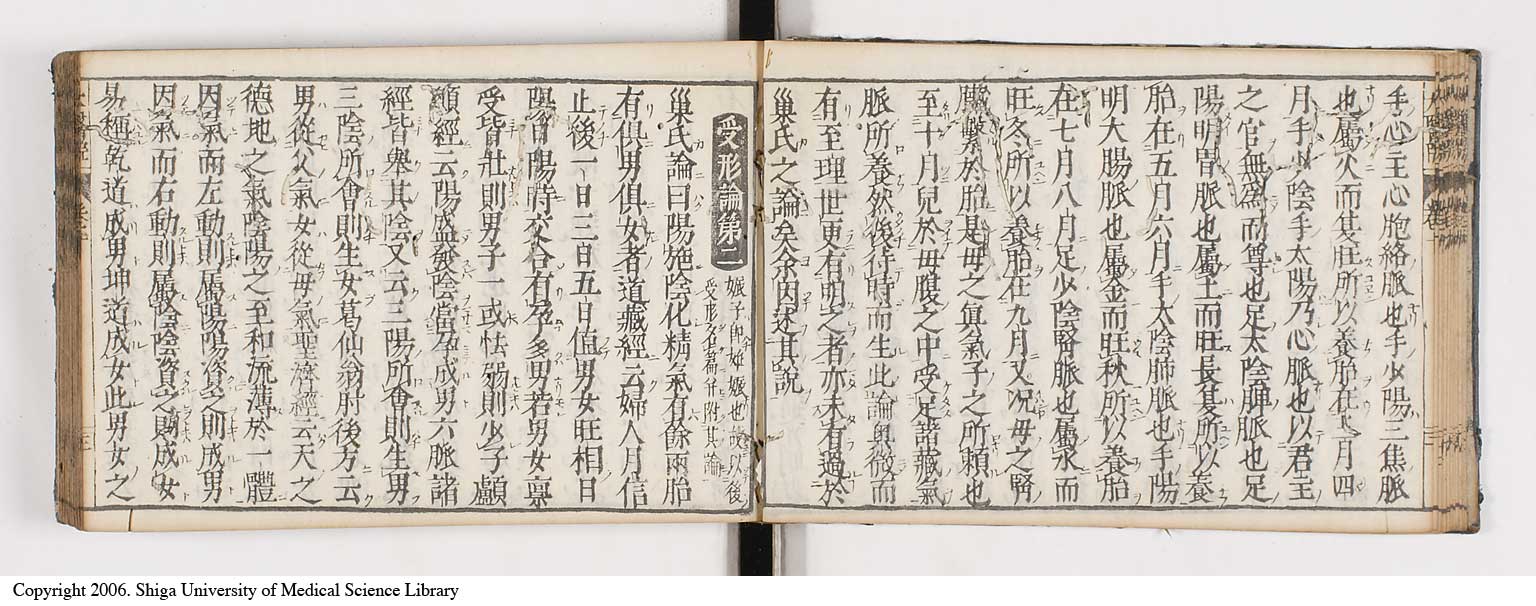 手心主心胞絡脈也手少陽三焦脈
也屬火而其旺所以養胎在
月手少陰手太陽乃心脈也以君主
之官無爲而尊也足太陰脾脈也足
陽明胃脈也屬土而旺長夏所以養
胎在五月六月手太陰肺脈也手陽
明大腸脈也屬金而旺秋所以養胎
在七月八月足少陰腎脈也屬水而
旺冬所以養胎在九月又况母之腎
臟繋於胎是母之眞氣子之所賴也
至十月兒於母腹之中受足諸藏氣
脈所養然後待時而生此論奥微而
有至理世更有明之者亦未有過於
巢氏之論矣余因述其説
受形論第二
娠子即妊娠也 以後
受形名篇并附其論
巢氏論曰陽施陰化精氣有餘兩胎
有俱男俱女者道藏經云婦人月信
止後一日三日五日値男女旺相日
陽日陽時交合有孕多男若男女稟
受皆壯則男子一或怯弱則少子顱
顖經云陽盛發陰當孕成男六脈諸
經皆舉其陰又云三陽所會則生男
三陰所會則生女葛仙翁肘後方云
男從父氣女從母氣聖濟經云天之
德地之氣陰陽之至和流薄於一體
因氣而左動則屬陽陽資之則成男
因氣而右動則屬陰陰資之則成女
易稱乾道成男坤道成女此男女之
Copyright 2006. Shiga University of Medical Science Library